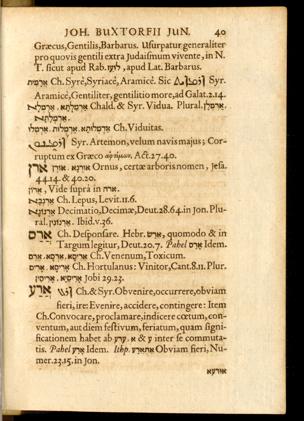 JOH. BUXTORFII JUN. 40
Græcus, Gentilis, Barbarus. Usurpatur generaliter
pro quovis gentili extra Judaismum vivente, in N.
T. sicut apud Rab. לועז, apud Lat. Barbarus.
ארמית Ch. Syrè, Syriacè, Aramicè. Sic Syr.
Aramicè, Gentiliter, gentilitio more, ad Galat. 2.14.
ארמלא, ארמלתא Chald. & Syr. Vidua. Plural. ארמלן,
ארמלתא
ארמלו, ארמלות, ארמלותא Ch. Viduitas.
Syr. Artemon, velum navis majus; Cor-
ruptum ex Græco Act. 27.40.
ארן Ornus, certæ arboris nomen, Jesa.
44.14. & 40.20.
ארן, Vide suprà in
ארנבא Ch. Lepus, Levit. 11.6.
ארנונא Decimatio, Decimæ, Deut. 28.64. in Jon. Plu-
ral. ארנונין. Ibid. v. 36.
ארס Ch. Desponsare. Hebr. ארש, quomodo & in
Targum legitur, Deut. 20.7. Pahel ארס Idem.
ארס, ארסא Ch. Venenum, Toxicum.
אריס, אריסא Ch. Hortulanus: Vinitor, Cant. 8.11. Plur.
אריסין, אריסיא Jobi 29.23.
ארע Ch. & Syr. Obvenire, occurrere, obviam
fieri, ire: Evenire, accidere, contingere: Item
Ch. Convocare, proclamare, indicere cœtum, con-
ventum, aut diem festivum, feriatum, quam signi-
ficationem habet ab ערע. א & ע inter se commuta-
tis. Pahel ארע Idem. Ithp. אתארע Obviam fieri, Nu-
mer. 23.15. in Jon.
אורעא